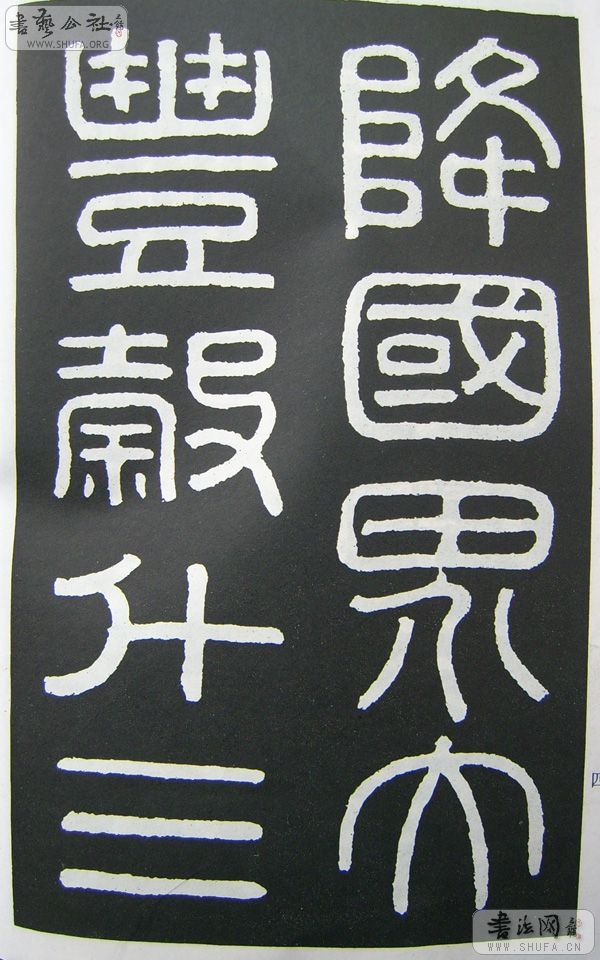 書藝公社
WWW.SHUFA.ORG
降國界大
豐穀什三
書法网
WWW.SHUFA.CN